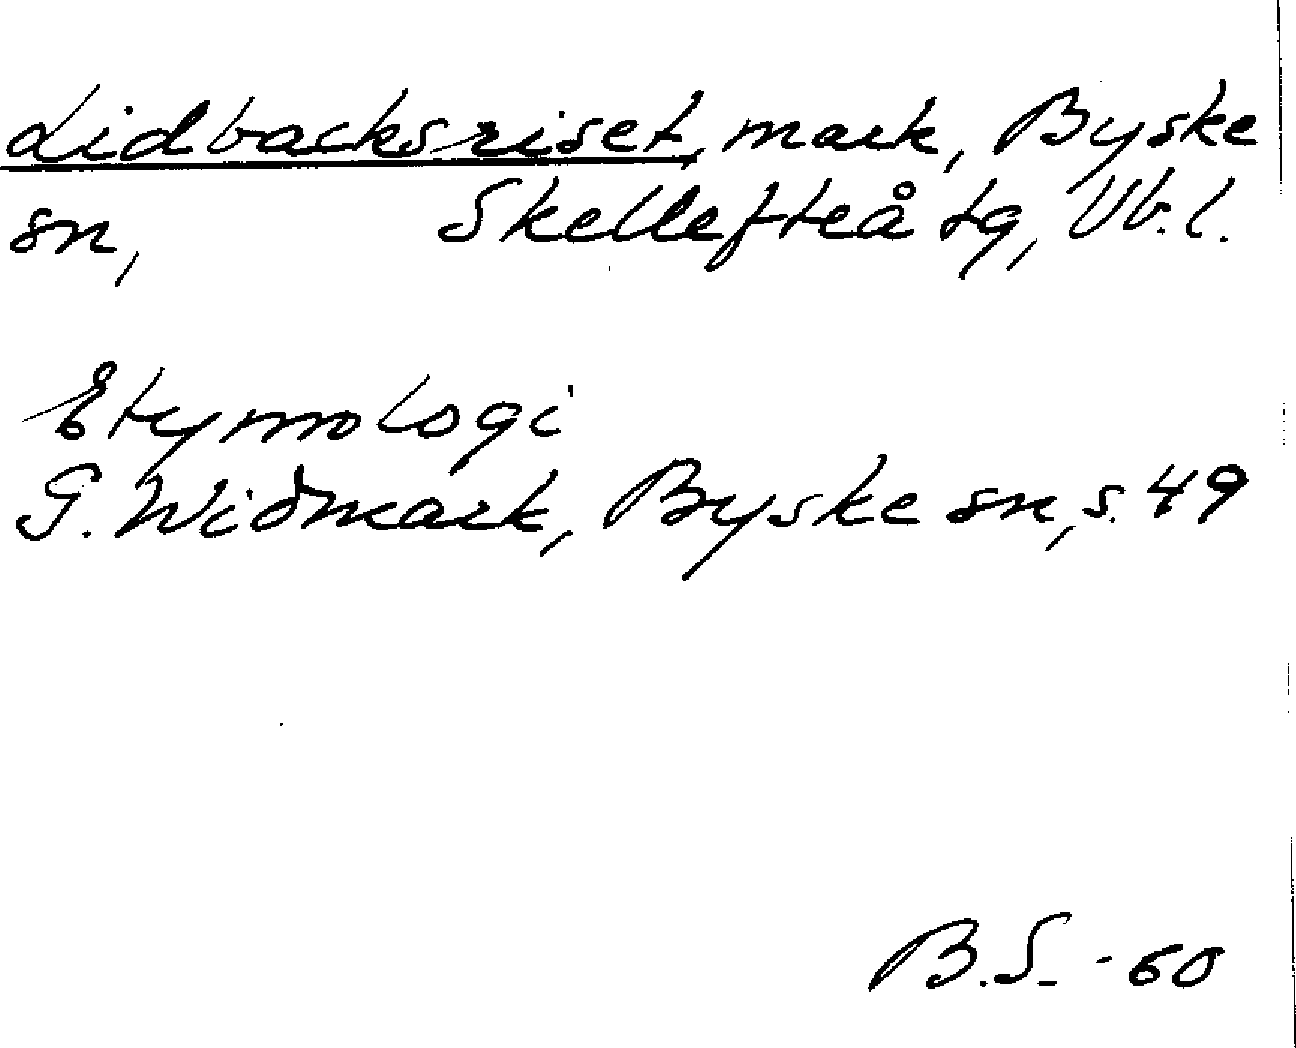 Lidbacksriset, mark, Byske
sn, Skellefteå tg, Vb.l.
Etymologi
G. Widmark, Byske sn, s. 49
B.S. - 60